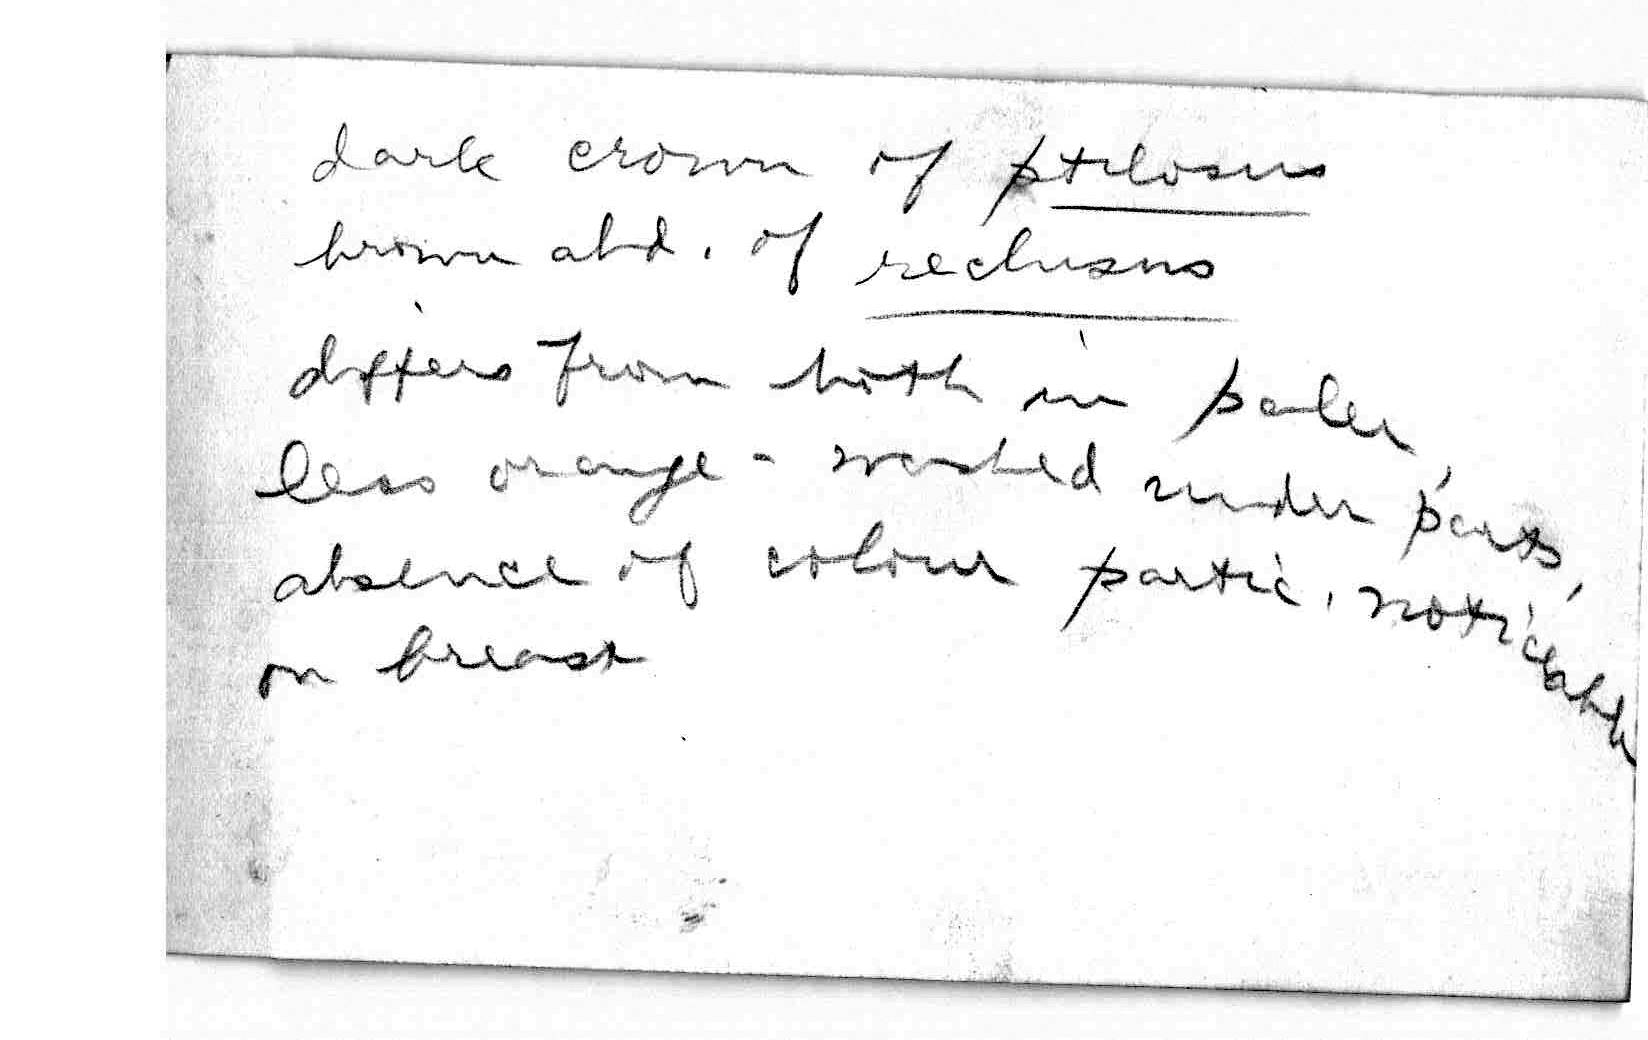 dark crown of ptilosus
brown abd. of reclusus
differs from both in paler,
less orange-washed under parts,
absence of colour partic. noticeable
on breast